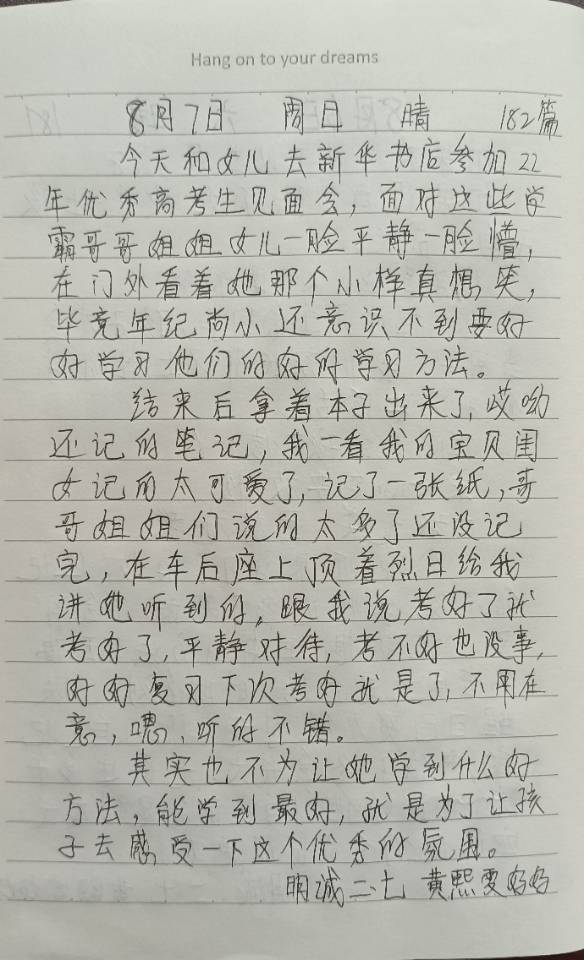 Hang on to your dreams
8月7日 周日 晴 182篇
今天和女儿去新华书店参加22
年优秀高考生见面会，面对这些学
霸哥哥姐姐女儿一脸平静一脸懵，
在门外看着她那个小样真想笑，
毕竟年纪尚小还意识不到要好
好学习他们的好的学习方法。
结束后拿着本子出来了，哎呦
还记的笔记，我一看我的宝贝闺
女记的太可爱了，记了一张纸，哥
哥姐姐们说的太多了还没记
完，在车后座上顶着烈日给我
讲她听到的，跟我说，考好了就
考好了，平静对待，考不好也没事，
好好复习下次考好就是了，不用在
意，嗯，听的不错。
其实也不为让她学到什么好
方法，能学到最好，就是为了让孩
子去感受一下这个优秀的氛围。
明诚二七 黄熙雯好好